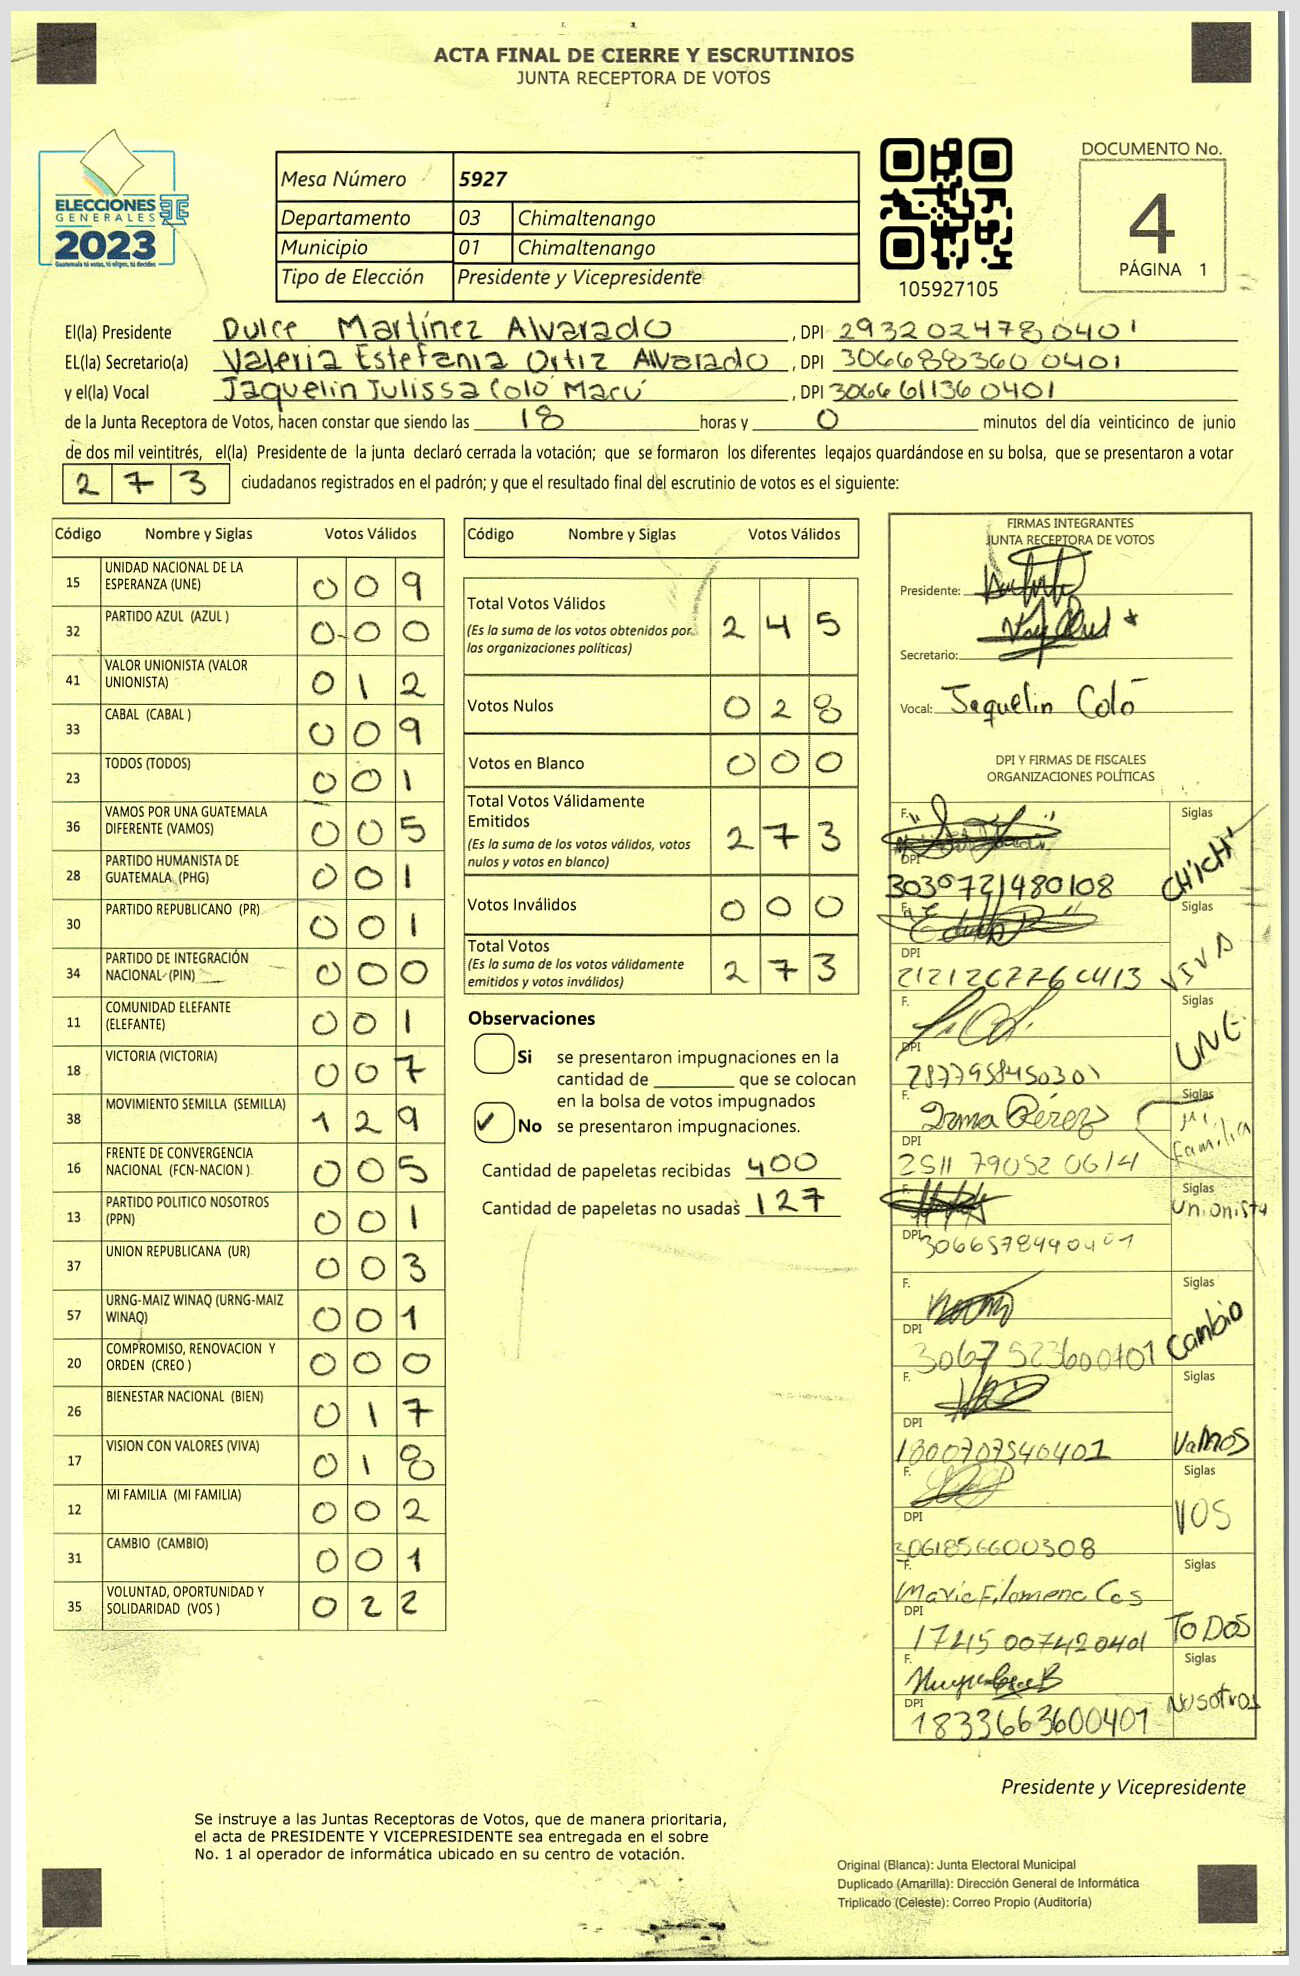 ACTA FINAL DE CIERRE Y ESCRUTINIOS
JUNTA RECEPTORA DE VOTOS
ELECCIONES
GENERALES
2023
Guatemala tú votas, tú eliges, tú decides
Mesa Número 5927
Departamento 03 Chimaltenango
Municipio 01 Chimaltenango
Tipo de Elección Presidente y Vicepresidente
105927105
DOCUMENTO No.
4
PÁGINA 1
El(la) Presidente Dulce Martínez Alvarado , DPI 2932024780401
EL(la) Secretario(a) Valeria Estefania Ortiz Alvarado , DPI 3066883600401
y el(la) Vocal Jaquelin Julissa Coló Macú , DPI 3066611360401
de la Junta Receptora de Votos, hacen constar que siendo las 18 horas y 0 minutos del día veinticinco de junio
de dos mil veintitrés, el(la) Presidente de la junta declaró cerrada la votación; que se formaron los diferentes legajos guardándose en su bolsa, que se presentaron a votar
273 ciudadanos registrados en el padrón; y que el resultado final del escrutinio de votos es el siguiente:
Código Nombre y Siglas Votos Válidos
15 UNIDAD NACIONAL DE LA ESPERANZA (UNE) 009
32 PARTIDO AZUL (AZUL ) 0-00
41 VALOR UNIONISTA (VALOR UNIONISTA) 012
33 CABAL (CABAL ) 009
23 TODOS (TODOS) 001
36 VAMOS POR UNA GUATEMALA DIFERENTE (VAMOS) 005
28 PARTIDO HUMANISTA DE GUATEMALA (PHG) 001
30 PARTIDO REPUBLICANO (PR) 001
34 PARTIDO DE INTEGRACIÓN NACIONAL (PIN) 000
11 COMUNIDAD ELEFANTE (ELEFANTE) 001
18 VICTORIA (VICTORIA) 007
38 MOVIMIENTO SEMILLA (SEMILLA) 129
16 FRENTE DE CONVERGENCIA NACIONAL (FCN-NACION ) 005
13 PARTIDO POLITICO NOSOTROS (PPN) 001
37 UNION REPUBLICANA (UR) 003
57 URNG-MAIZ WINAQ (URNG-MAIZ WINAQ) 001
20 COMPROMISO, RENOVACION Y ORDEN (CREO ) 000
26 BIENESTAR NACIONAL (BIEN) 017
17 VISION CON VALORES (VIVA) 018
12 MI FAMILIA (MI FAMILIA) 002
31 CAMBIO (CAMBIO) 001
35 VOLUNTAD, OPORTUNIDAD Y SOLIDARIDAD (VOS ) 022
Código Nombre y Siglas Votos Válidos
Total Votos Válidos 245
(Es la suma de los votos obtenidos por
las organizaciones políticas)
Votos Nulos 028
Votos en Blanco 000
Total Votos Válidamente
Emitidos 273
(Es la suma de los votos válidos, votos
nulos y votos en blanco)
Votos Inválidos 000
Total Votos 273
(Es la suma de los votos válidamente
emitidos y votos inválidos)
Observaciones
Si se presentaron impugnaciones en la
cantidad de ________ que se colocan
en la bolsa de votos impugnados
✓ No se presentaron impugnaciones.
Cantidad de papeletas recibidas 400
Cantidad de papeletas no usadas 127
FIRMAS INTEGRANTES
JUNTA RECEPTORA DE VOTOS
Presidente:
Secretario:
Vocal: Jaquelin Coló
DPI Y FIRMAS DE FISCALES
ORGANIZACIONES POLÍTICAS
F. Siglas
DPI
3030721480108 CHICH
F. Siglas
DPI
2121267760413 VIVA
F. Siglas
DPI
UNE
F. Irma Pérez Siglas
DPI Mi familia
2511 79052 0614
F. Siglas
Unionista
DPI
F. Siglas
DPI
Cambio
F. Siglas
DPI
1800707540401 VaMOS
F. Siglas
DPI VOS
3061856600308
F. Siglas
Maria Filomena Cos
DPI
1745 00742 0401 ToDOS
F. Siglas
DPI Nosotros
1833663600401
Presidente y Vicepresidente
Se instruye a las Juntas Receptoras de Votos, que de manera prioritaria,
el acta de PRESIDENTE Y VICEPRESIDENTE sea entregada en el sobre
No. 1 al operador de informática ubicado en su centro de votación.
Original (Blanca): Junta Electoral Municipal
Duplicado (Amarilla): Dirección General de Informática
Triplicado (Celeste): Correo Propio (Auditoría)